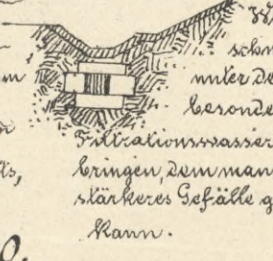 38
schw
unter de
besonde
Filtrationswasser
bringen, dem man
stärkeres Gefälle g
kann.
m
r
ts,
0.